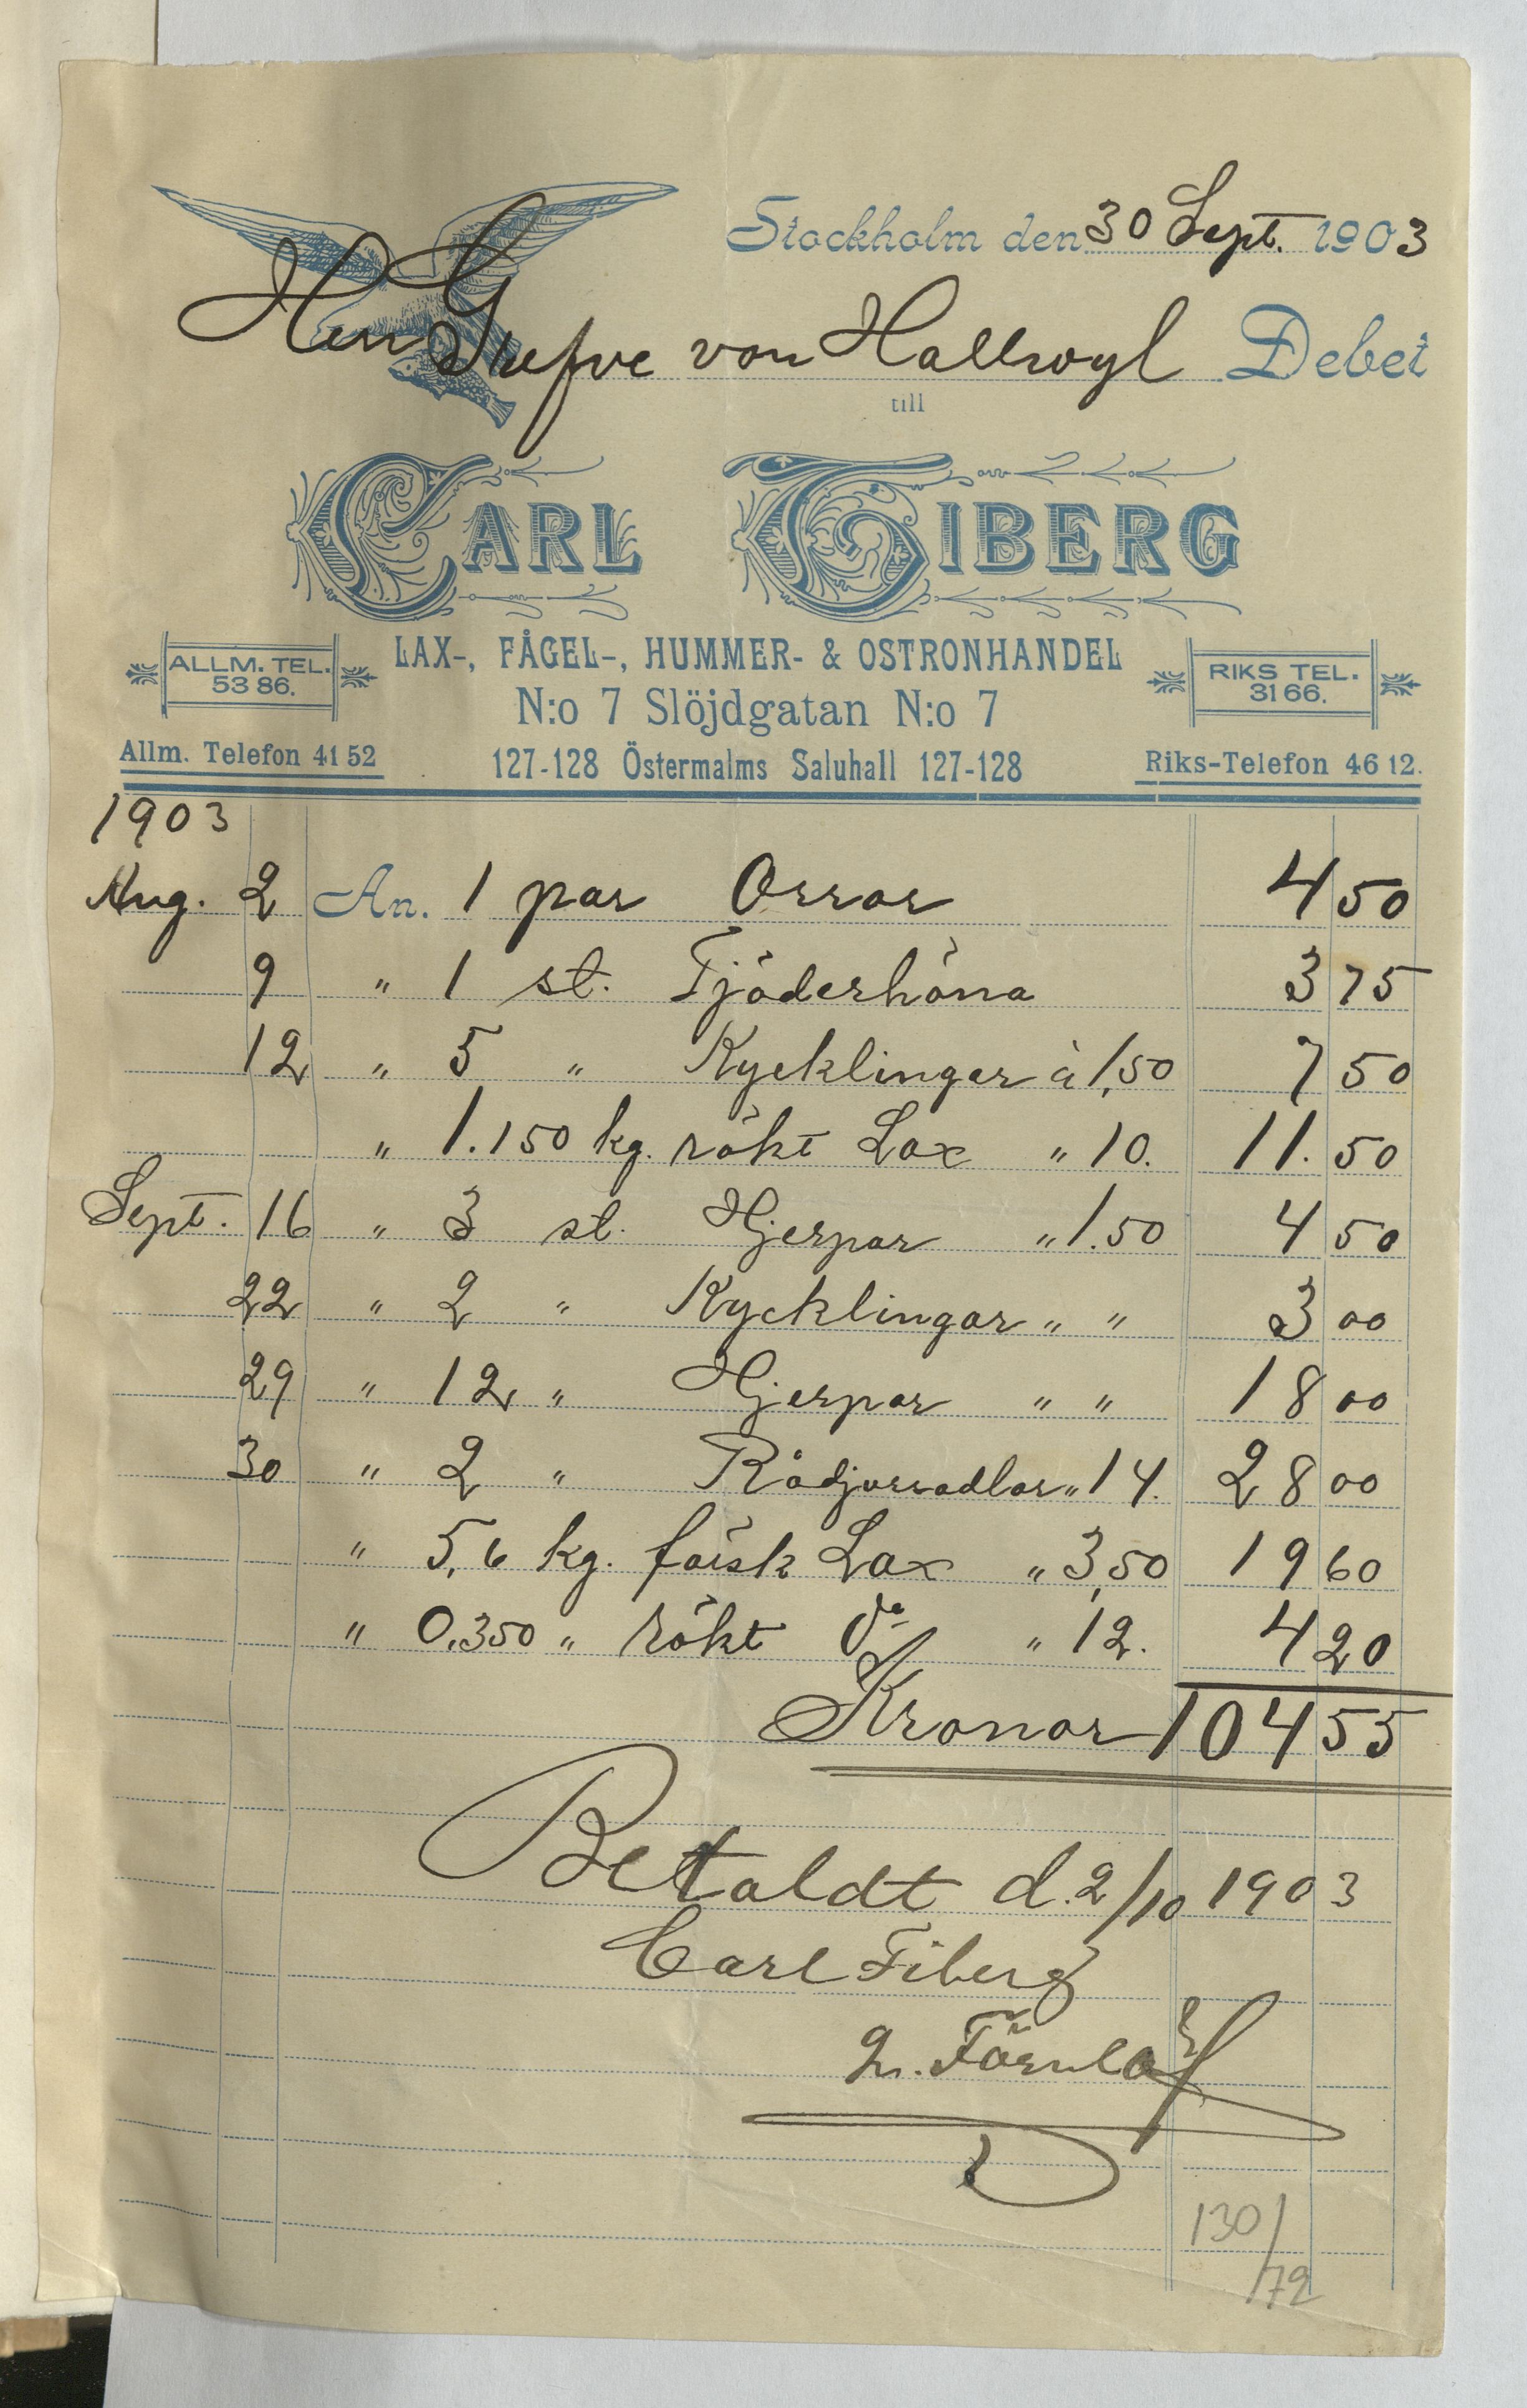 Stockholm den 30 Sept. 1903
Herr Grefve von Hallwyl Debet
till
CARL TIBERG
LAX-, FÅGEL-, HUMMER- & OSTRONHANDEL
ALLM. TEL. 53 86.
RIKS TEL. 31 66.
N:o 7 Slöjdgatan N:o 7
Allm. Telefon 41 52 127-128 Östermalms Saluhall 127-128 Riks-Telefon 46 12.
1903
Aug. 2 An. 1 par Orrar 4 50
9 " 1 st. Tjäderhöna 3 75
12 " 5 " Kycklingar à 1,50 7 50
" 1.150 kg. rökt Lax " 10. 11. 50
Sept. 16 " 3 st. Hjerpar " 1.50 4 50
22 " 2 " Kycklingar " " 3 00
29 " 12 " Hjerpar " " 18 00
30 " 2 " Rådjurssadlar " 14. 28 00
" 5,6 kg. färsk Lax " 3,50 19 60
" 0.350 " rökt do " 12. 4 20
Kronor 104 55
Betaldt d. 2/10 1903
Carl Tiberg
130/72